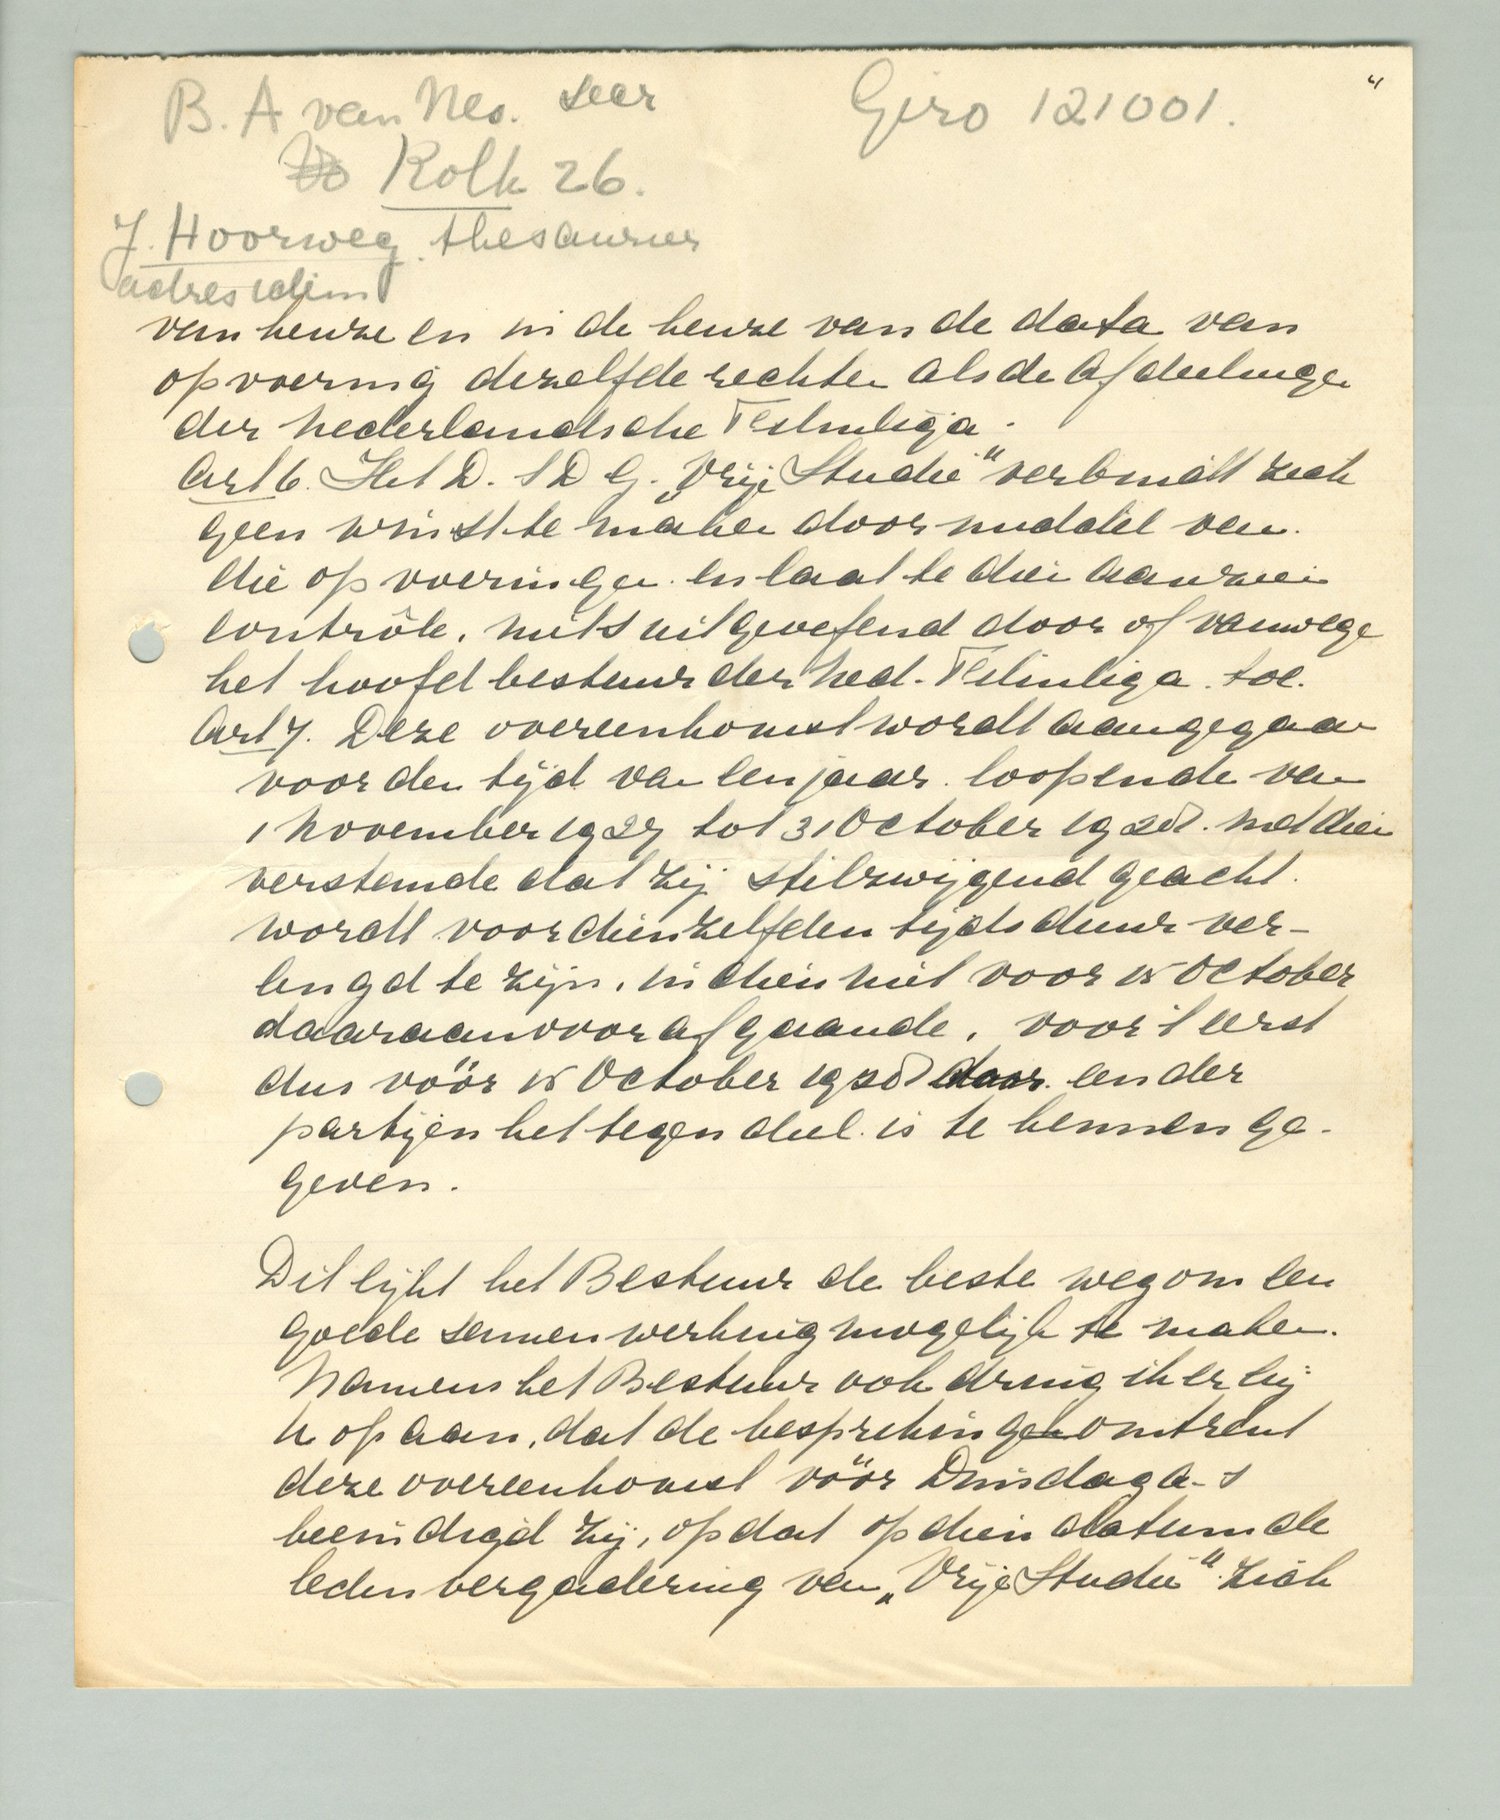 B. A van Nes. secr
Giro 121001.
4
Kolk 26.
J. Hoorweg. thesaurier
adres idem
van keuze en in de keuze van de data van
opvoering dezelfde rechten als de Afdeelingen
der Nederlandsche Filmliga.
Art 6. Het D. S D G. „Vrije Studie" verbindt zich
geen winst te maken door middel van
die opvoeringen en laat te dien aanzien
contrôle, mits uitgeoefend door of vanwege
het hoofdbestuur der Ned. Filmliga toe.
Art 7. Deze overeenkomst wordt aangegaan
voor den tijd van een jaar loopende van
1 November 1927 tot 31 October 1928. Met dien
verstande dat zij stilzwijgend geacht
wordt voor dienzelfden tijdsduur ver-
lengd te zijn, indien niet voor 15 October
daaraanvoorafgaande, voor 't eerst
dus vóór 15 October 1928 door een der
partijen het tegendeel is te kennen ge-
geven.
Dit lijkt het Bestuur de beste weg om een
goede samenwerking mogelijk te maken.
Namens het Bestuur ook dring ik er bij
U op aan, dat de besprekingen omtrent
deze overeenkomst vóór Dinsdag a.s
beëindigd zij, opdat op dien datum de
ledenvergadering van „Vrije Studie" zich